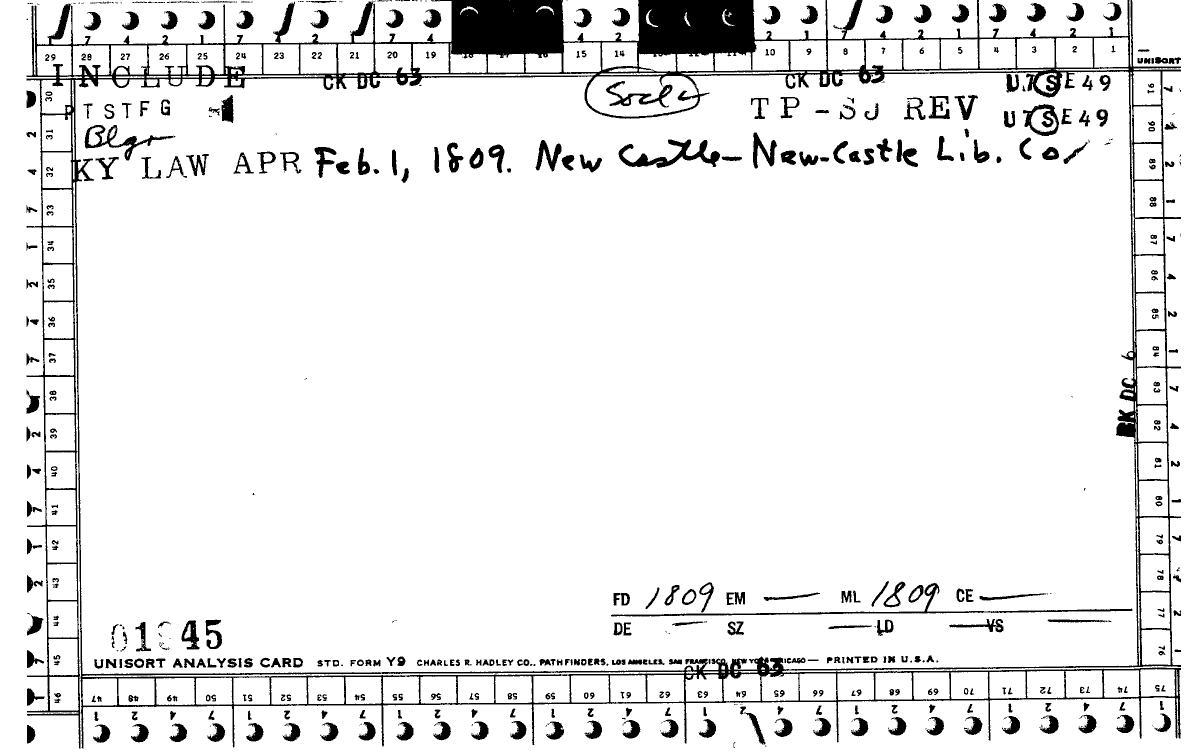 7 4 2 1 7 4 2 1 7 4 4 2 2 1 7 4 2 1 7 4 2 1
29 28 27 26 25 24 23 22 21 20 19 15 14 10 9 8 7 6 5 4 3 2 1
UNISORT
INCLUDE CK DC 63 CK DC 63 U7SE49
TSTFG TP-SJ REV U7SE49
Blgr
KY LAW APR Feb. 1, 1809. New Castle- New-Castle Lib. Co.
30 31 32 33 34 35 36 37 38 39 40 41 42 43 44 45 46
91 90 89 88 87 86 85 84 83 82 81 80 79 78 77 76
BK DC 6
FD 1809 EM — ML 1809 CE —
DE — SZ — LD — VS —
45
UNISORT ANALYSIS CARD STD. FORM Y9 CHARLES R. HADLEY CO., PATHFINDERS, LOS ANGELES, SAN FRANCISCO, NEW YORK, CHICAGO — PRINTED IN U.S.A.
CK DC 63
47 48 49 50 51 52 53 54 55 56 57 58 59 60 61 62 63 64 65 66 67 68 69 70 71 72 73 74 75
1 2 4 7 1 2 4 7 1 2 4 7 1 2 4 7 1 2 4 7 1 2 4 7 1 2 4 7 1